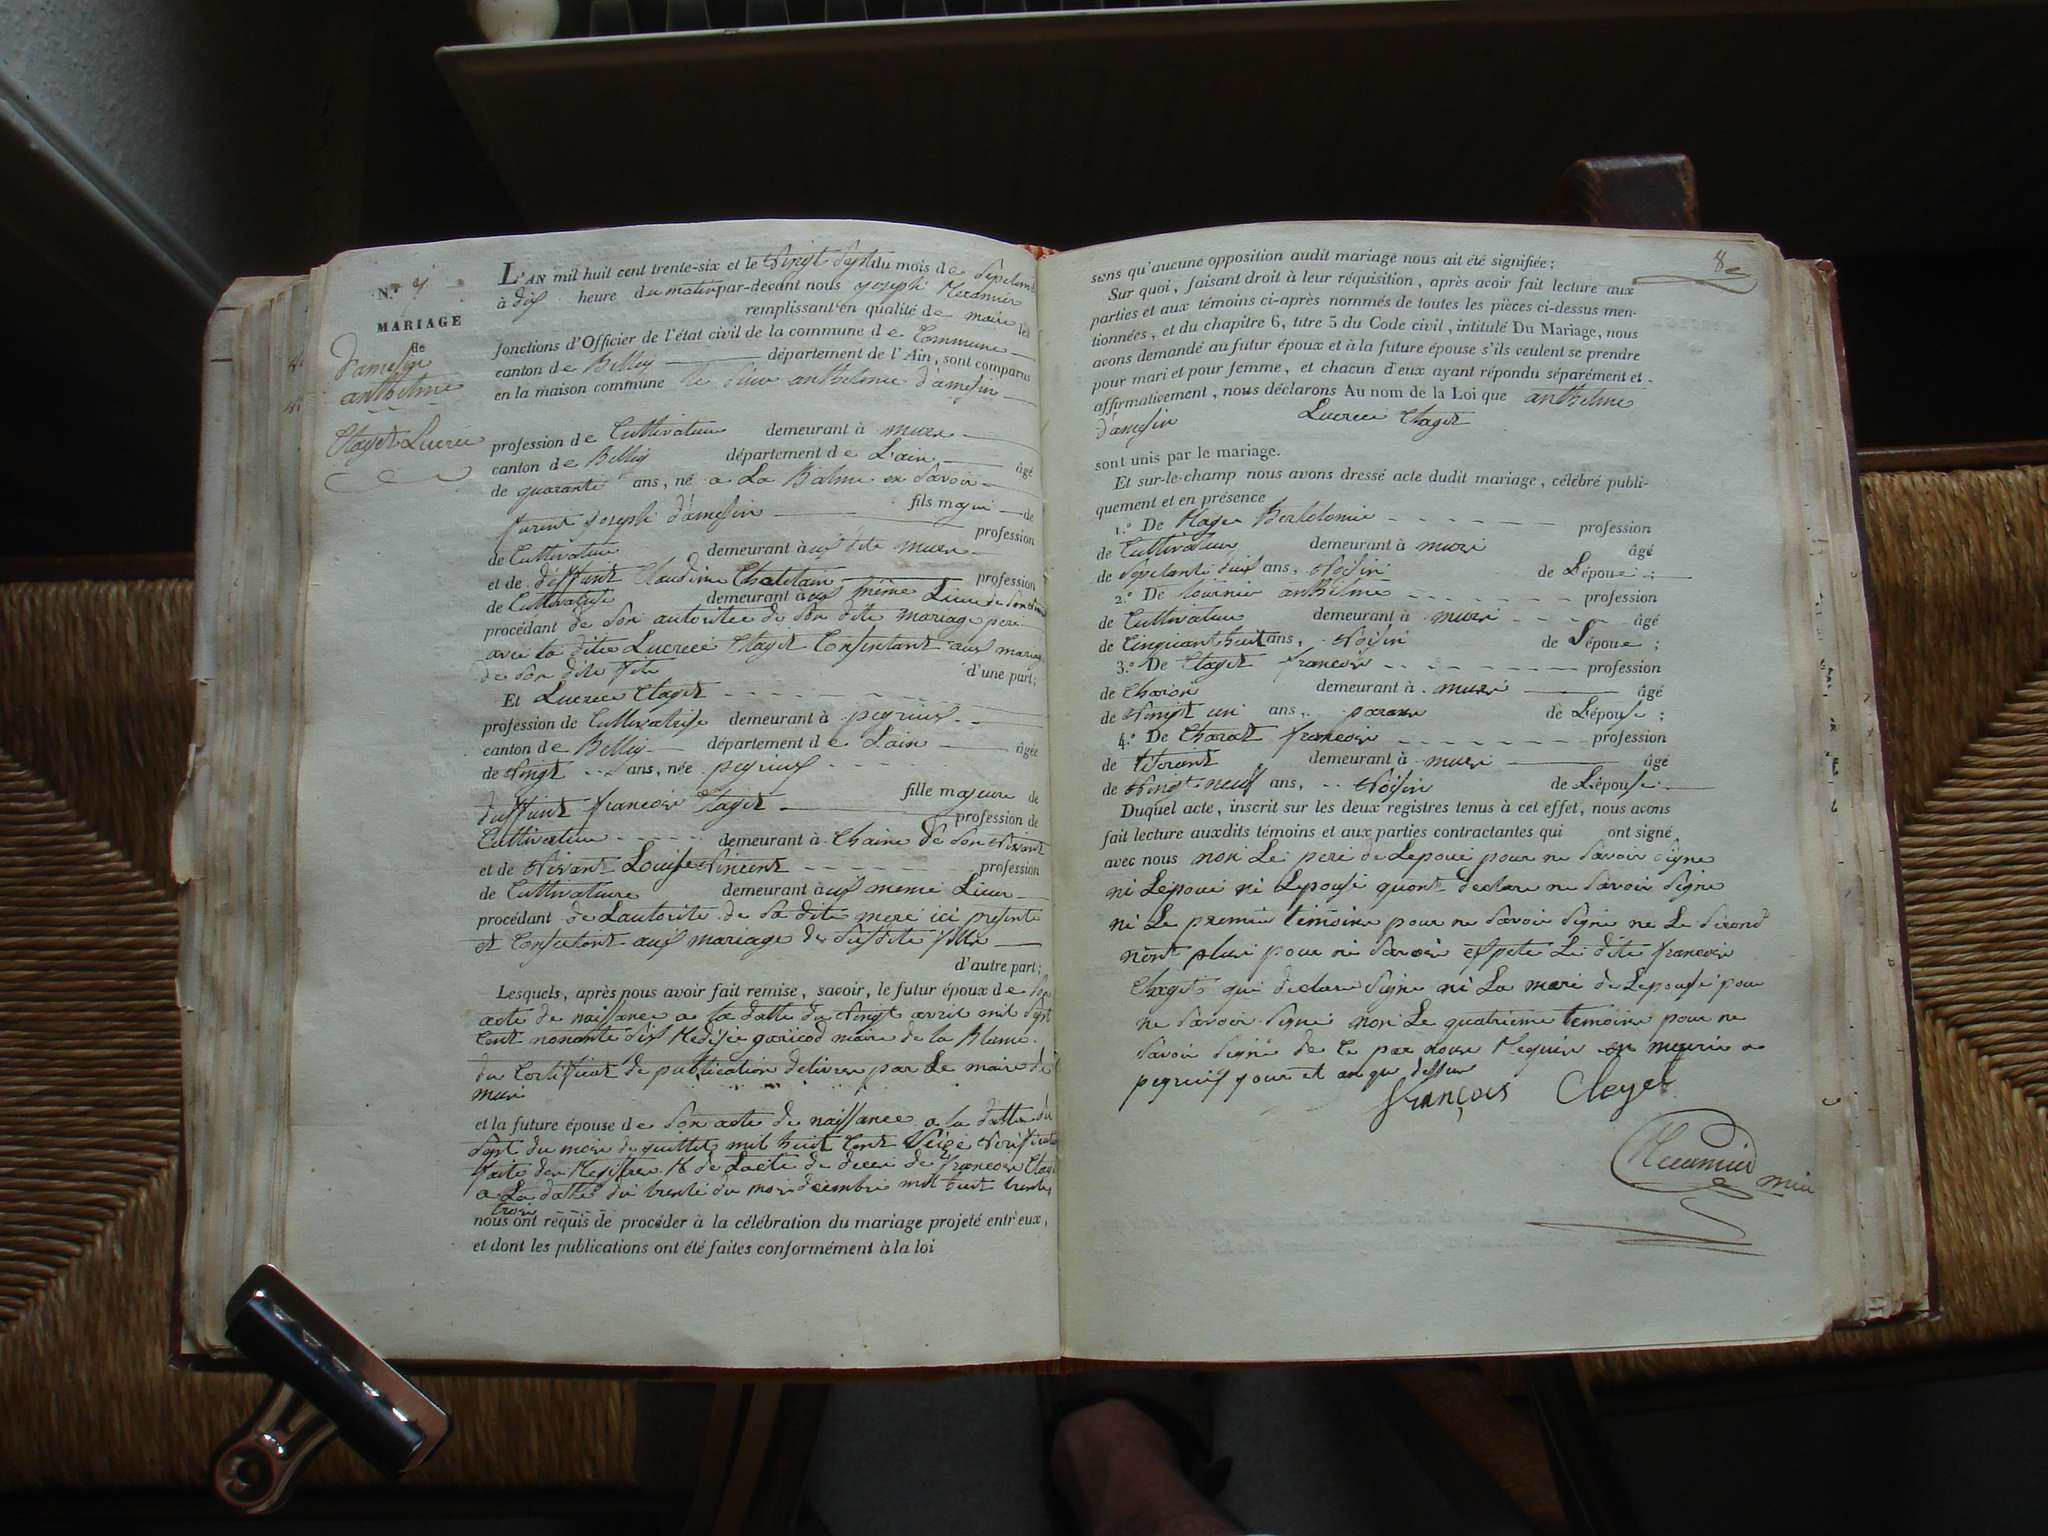 N.º 7
MARIAGE
de
D'amesin
anthelme
Clayet Lucrèce
L'AN mil huit cent trente-six et le vingt sept du mois de septembre
à dix heure du matin par-devant nous joseph
remplissant en qualité de maire les
fonctions d'Officier de l'état civil de la commune de Commune
canton de Belley département de l'Ain, sont comparus
en la maison commune le sieur anthelme d'amesin
profession de Cultivateur demeurant à mure
canton de Belley département de L'ain âgé
de quarante ans, né a La Balme en Savoir
fils majeur de
joseph d'amesin profession
de Cultivateur demeurant à aus dite mure
et de deffunt Claudine Chatelain profession
de Cultivatrise demeurant à aus même Lieux
procédant de son autoritee de son dite mariage pere
avec la dite Lucrece Clayet Consentant aus mariage
de son dite fils d'une part;
Et Lucrece Clayet
profession de Cultivatrise demeurant à peyrieus
canton de Belley département de Lain âgée
de vingt ans, née peyrieus
fille majeure de
deffunt francois Clayet profession de
Cultivateur demeurant à de son vivant
et de vivant Louise vincent profession
de Cultivature demeurant à aus meme Lieux
procédant de Lautorite de sa dite mere ici presente
et Consentant aus mariage de susdite fille
d'autre part;
Lesquels, après nous avoir fait remise, savoir, le futur époux de son
acte de naissance a la datte du vingt avril mil sept
Cent nonante dix maire de la Blame
du Certificat de publication delivrer par Le maire de
mure
et la future épouse de son acte de naissance a la datte du
sept du mois de juillet mil huit Cent seize
faite des Registres de Lacte de deces de francois Clayet
a La datte du trente du mois decembre mil huit trente
trois
nous ont requis de procéder à la célébration du mariage projeté entr'eux,
et dont les publications ont été faites conformément à la loi
8
sens qu'aucune opposition audit mariage nous ait été signifiée;
Sur quoi, faisant droit à leur réquisition, après avoir fait lecture aux
parties et aux témoins ci-après nommés de toutes les pièces ci-dessus men-
tionnées, et du chapitre 6, titre 5 du Code civil, intitulé Du Mariage, nous
avons demandé au futur époux et à la future épouse s'ils veulent se prendre
pour mari et pour femme, et chacun d'eux ayant répondu séparément et
affirmativement, nous déclarons Au nom de la Loi que anthelme
d'amesin Lucrece Clayet
sont unis par le mariage.
Et sur-le-champ nous avons dressé acte dudit mariage, célébré publi-
quement et en présence
1.º De Berlolomie profession
de Cultivateur demeurant à mure âgé
de septante ans, voisin de L'époue;
2.º De tournier anthelme profession
de Cultivateur demeurant à mure âgé
de Cinquant huit ans, voisin de L'époue;
3.º De Clayet francois profession
de Charon demeurant à mure âgé
de vingt un ans, de L'épouse;
4.º De Charat francois profession
de demeurant à mure âgé
de vingt neuf ans, voisin de L'épouse
Duquel acte, inscrit sur les deux registres tenus à cet effet, nous avons
fait lecture auxdits témoins et aux parties contractantes qui ont signé
avec nous non Le pere de Lepoue pour ne savoir signe
ni Lepoue ni Lepouse quont declare ne savoir signe
ni Le premier temoins pour ne savoir signe ne Le second
non plus pour ne savoir Le dite francois
Clayet qui declare signe ni La mere de Lepouse pour
ne savoir signe non Le quatrieme temoins pour ne
savoir signe de Ce par nous Requis
peyrieus jour et an que dessus
françois Clayet